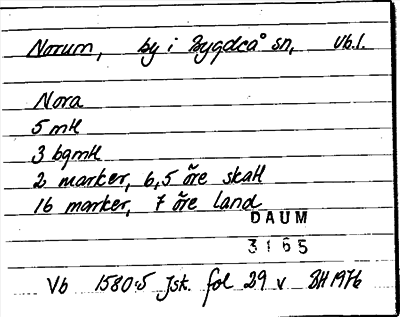 Norum, by i Bygdeå sn, Vb.l.
Nora
5 mtl
3 bgmtl
2 marker, 6,5 öre skatt
16 marker, 7 öre land
DAUM
3165
Vb 1580:5 Jsk. fol 29 v BH 1976